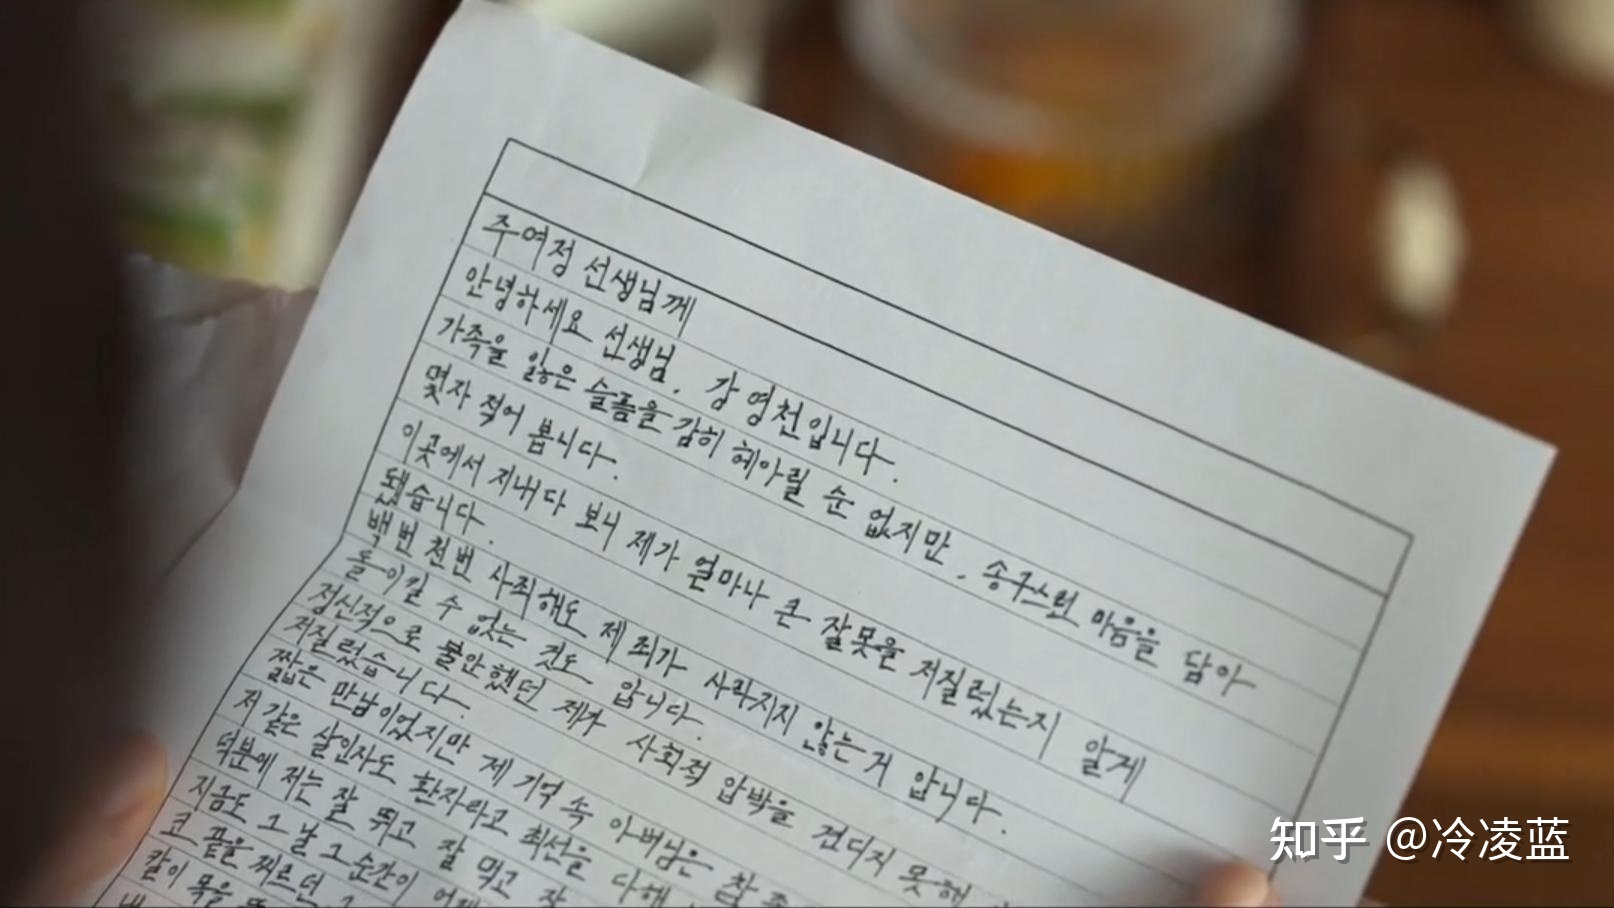 주여정 선생님께
안녕하세요 선생님. 강영천입니다.
가족을 잃은 슬픔을 감히 헤아릴 순 없지만, 송구스런 마음을 담아
몇자 적어 봅니다.
이곳에서 지내다 보니 제가 얼마나 큰 잘못을 저질렀는지 알게
됐습니다.
백번 천번 사죄해도 제 죄가 사라지지 않는 거 압니다.
돌이킬 수 없는 것도 압니다.
정신적으로 불안했던 제가 사회적 압박을 견디지 못해
저질렀습니다.
짧은 만남이었지만 제 기억 속 아버님은 참
저 같은 살인자도 환자라고 최선을 다해
덕분에 저는 잘 뛰고 잘 먹고 잘
지금도 그날 그 순간이
코 끝을 찌르던
칼이 목을
知乎 @冷凌蓝